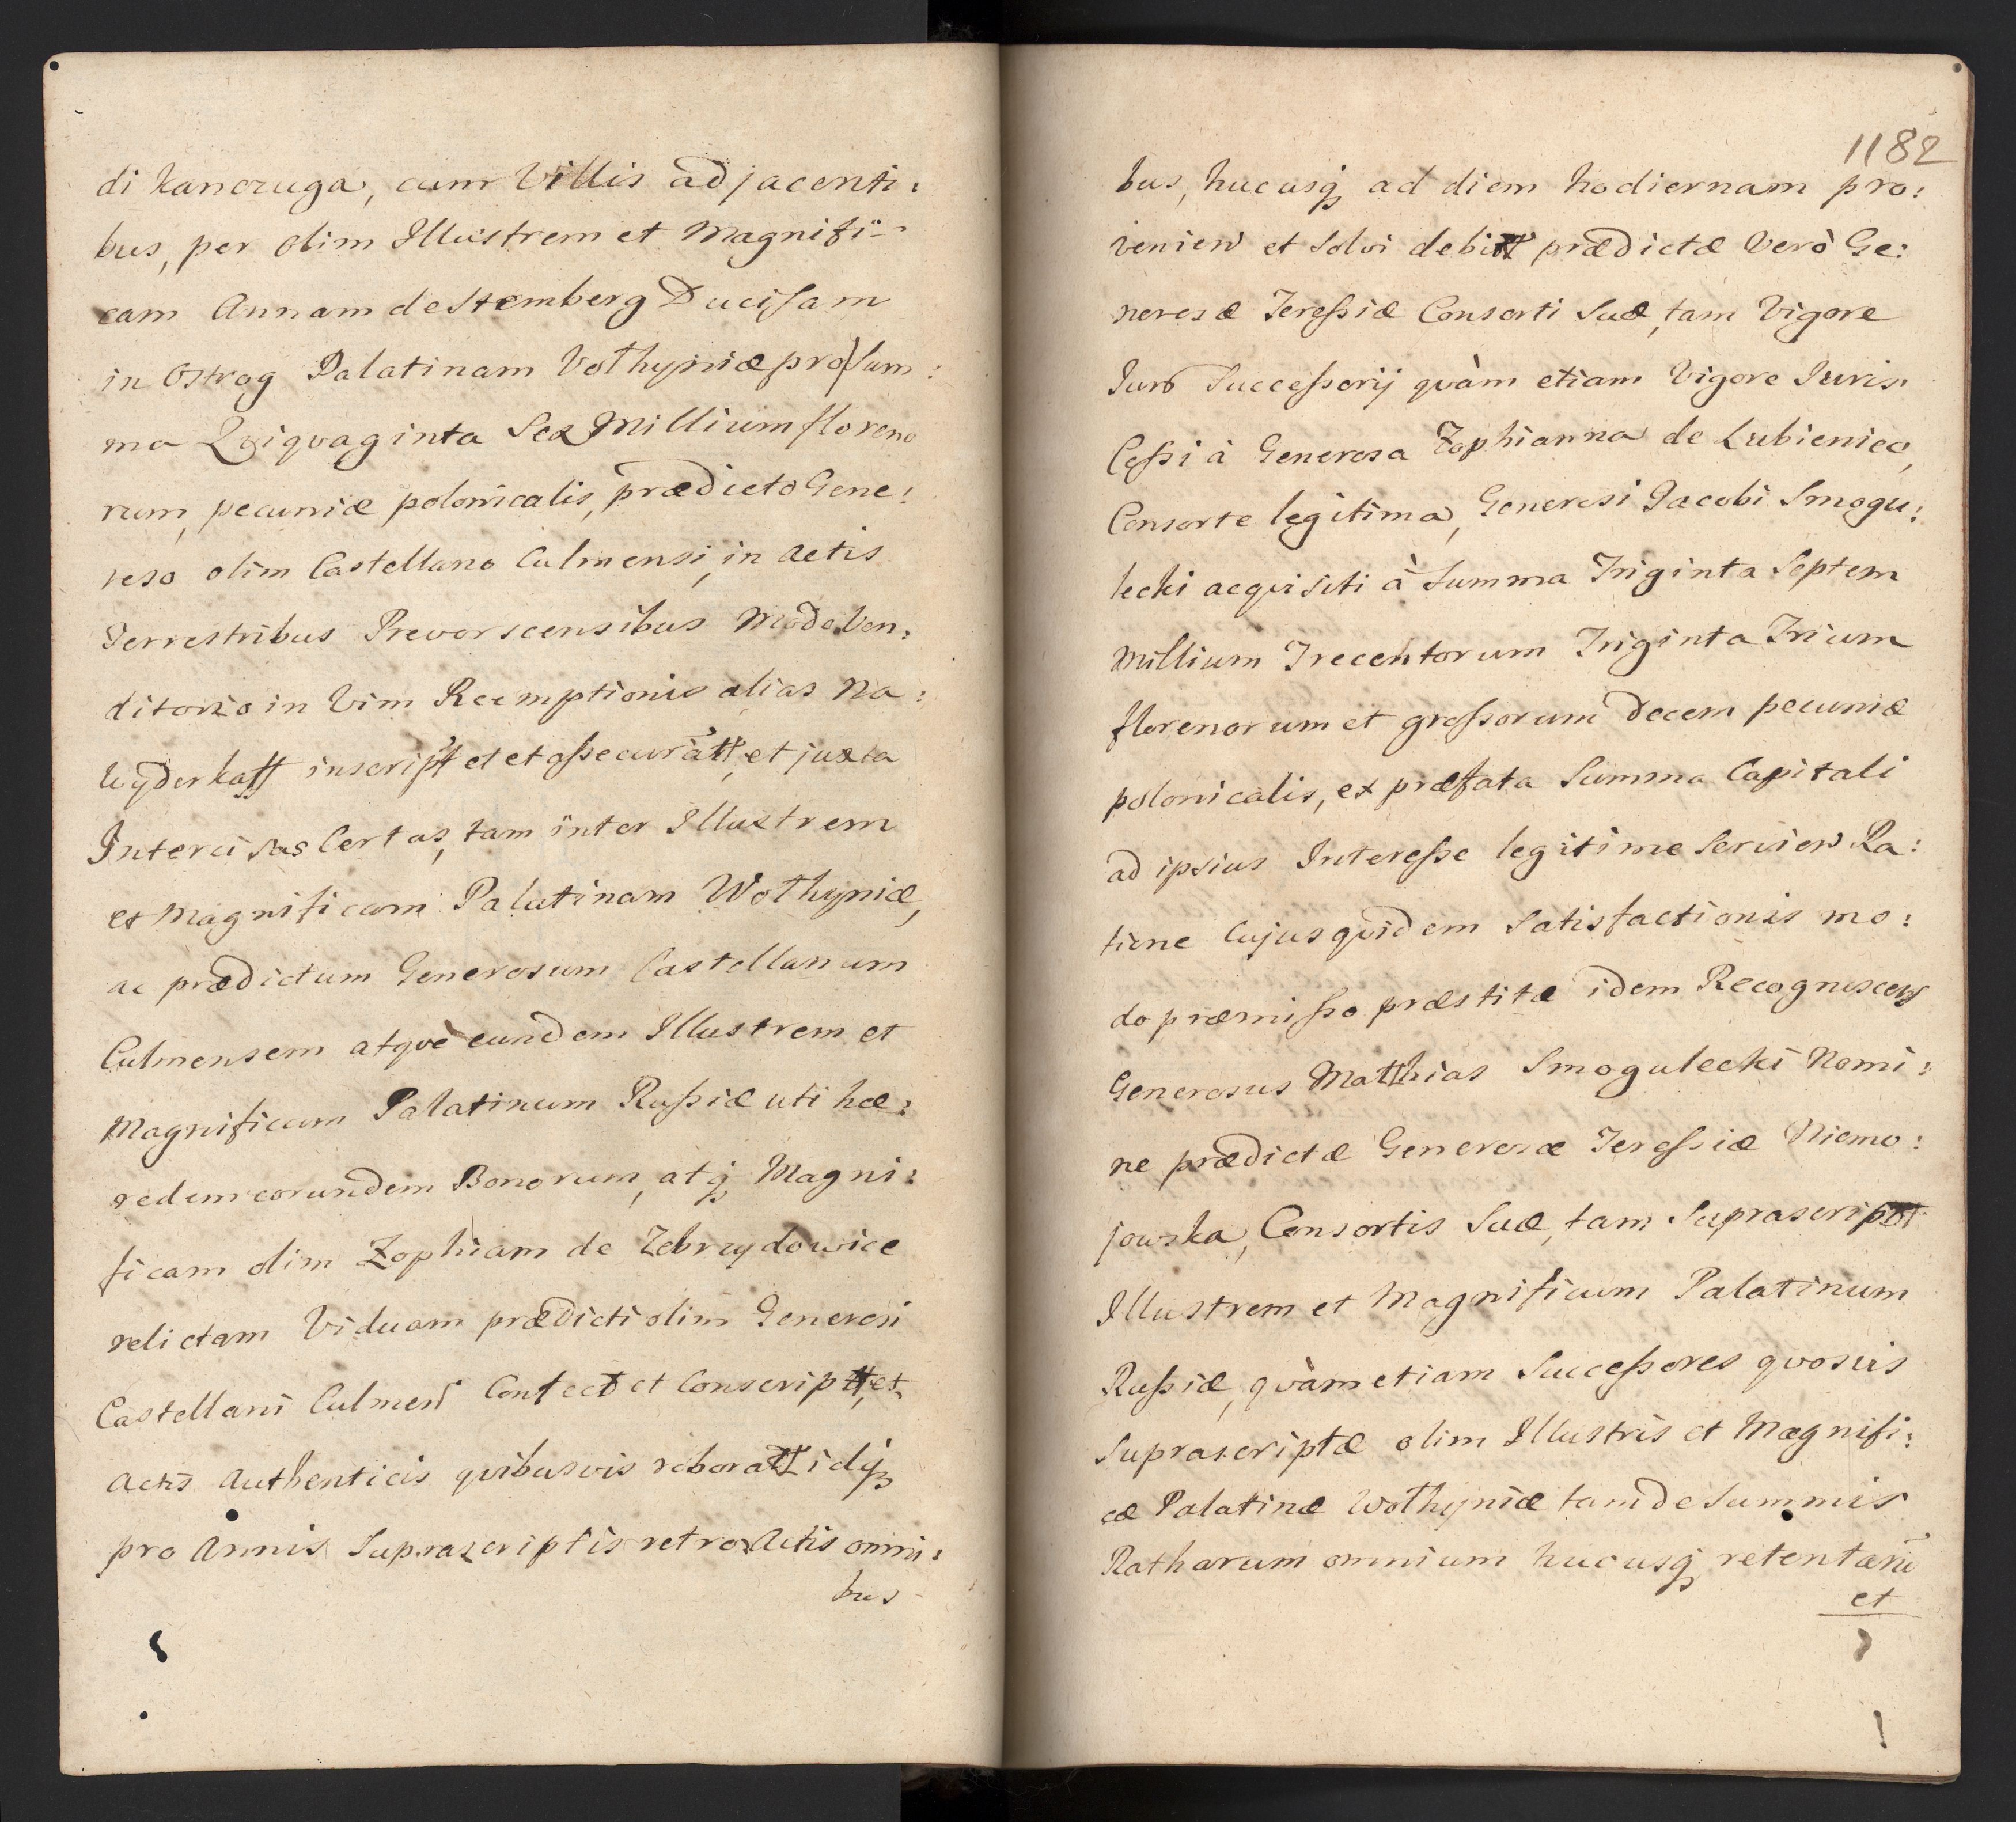 di Kanczuga, cum Villis adjacenti:
bus, per olim Illustrem et Magnifi-
cam Annam de Stemberg Ducißam
in Ostrog Palatinam Volhyniæ pro Sum:
ma Qviqvaginta Sex Millium floreno
rum, pecuniæ polonicalis, prædicto Gene:
roso olim Castellano Culmensi, in Actis
Terrestribus Prevorscensibus Modo Ven:
ditorio in Vim Reemptionis alias na:
Wÿderkaff inscript et et aßecuratt, et juxta
Intercisas Certas, tam inter Illustrem
et Magnificam Palatinam Wolhyniæ,
ac prædictum Generosum Castellanum
Culmensem atqvè eundem Illustrem et
Magnificum Palatinum Rußiæ uti hæ:
redem eorundem Bonorum, atq Magni:
ficam olim Zophiam de Zebrzydowice
relictam Viduam prædicti olim Generosi
Castellani Culmen Confect et Conscriptt, et
Actis Authenticis qvibusvis roboratt idq
pro Annis Suprascriptis retro Actis omni:
bus
1182
bus, hucusq ad diem hodiernam pro:
venien et Solvi debitt prædictæ Verò Ge:
nerosæ Tereßiæ Consorti Suæ, tam Vigore
Juris Succeßorij qvàm etiam Vigore Juris
Ceßi à Generosa Zophianna de Lubienice,
Consorte legitima, Generosi Jacobi Smogu:
lecki acqvisiti à Summa Triginta Septem
Millium Trecentorum Triginta Trium
florenorum et großorum Decem pecuniæ
polonicalis, ex præfata Summa Capitali
ad ipsius Intereße legitime Servien Ra:
tione Cujus qvidem Satisfactionis mo:
do præmißo præstitæ idem Recognoscens
Generosus Matthias Smogulecki Nomi:
ne prædictæ Generosæ Tereßiæ Niemo:
jowska, Consortis Suæ, tam Suprascriptt
Illustrem et Magnificum Palatinum
Rußiæ, qvàm etiam Succeßores qvosvis
Suprascriptæ olim Illustris et Magnifi:
cæ Palatinæ Wolhyniæ tam de Summis
Ratharum omnium hucusq retentaru
et